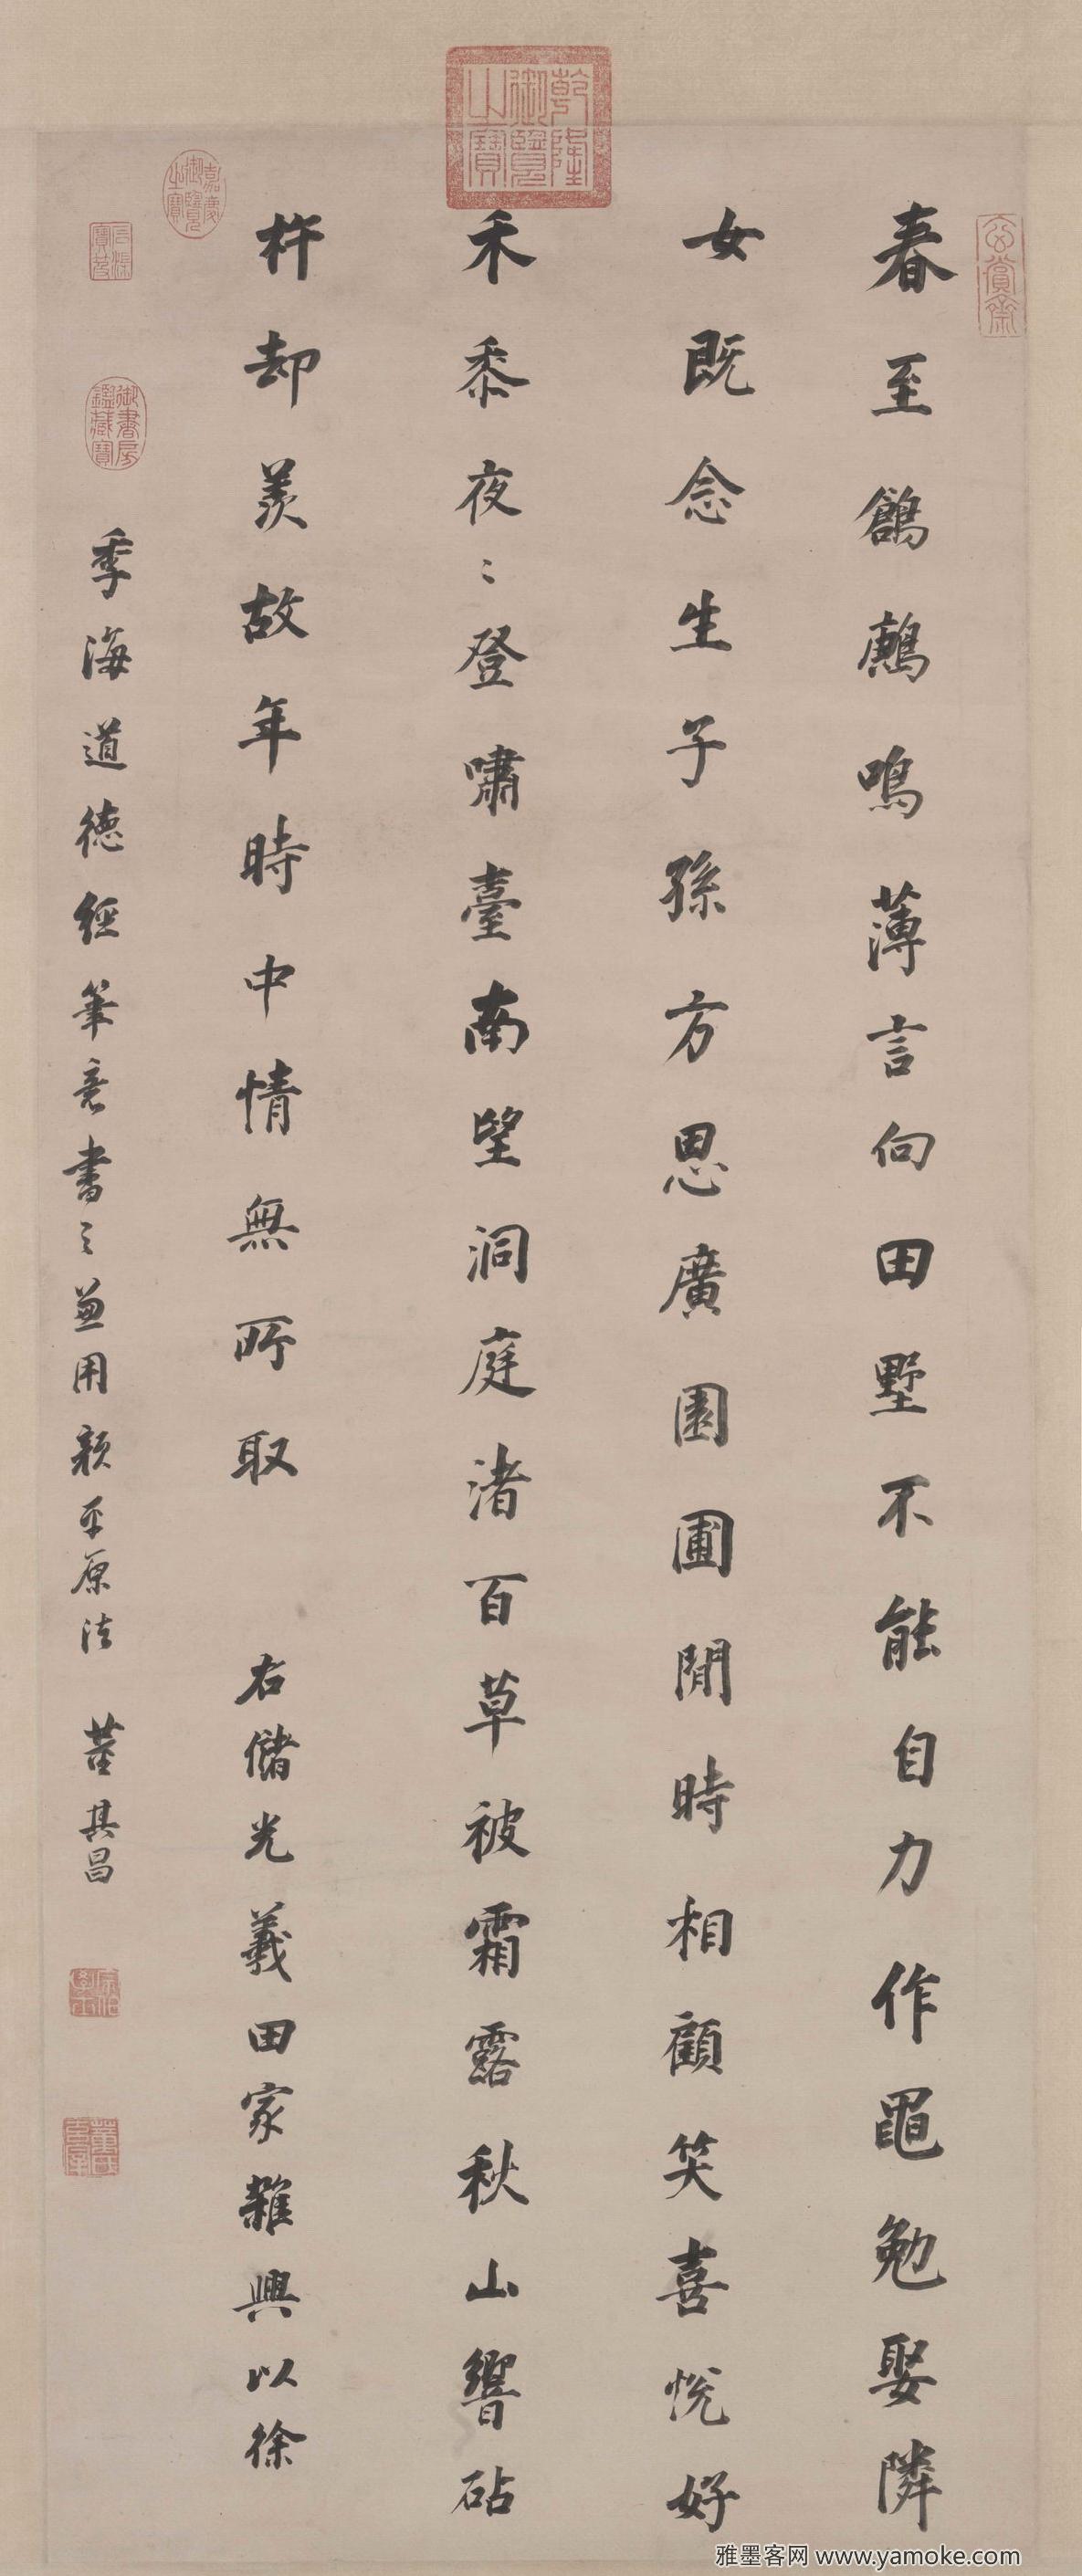 春至鶬鶊鳴薄言向田墅不能自力作黽勉娶隣
女既念生子孫方思廣園圃閒時相顧笑喜悅好
禾黍夜〻登嘯臺南望洞庭渚百草被霜露秋山響砧
杵却羨故年時中情無所取 右儲光羲田家雜興以徐
季海道德經筆意書之兼用顏平原法 董其昌
乾隆御覽之寶
嘉慶御覽之寶
御書房鑑藏寶
玄賞齋
雅墨客网 www.yamoke.com